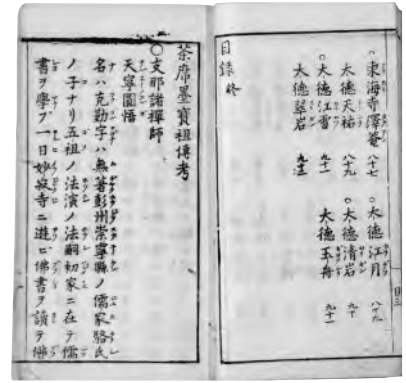 ○東海寺澤菴 八十七
○大徳江月 八十九
大徳天祐 八十九
○大徳清岩 九十
○大徳江雪 九十一
大徳玉舟 九十一
大徳翠岩
目録終
茶席墨寶祖傳考
○支那諸禪師
天寧圜悟
名ハ克勤字ハ無著彭州崇寧縣ノ儒家駱氏
ノ子ナリ五祖ノ法演ノ法嗣初家ニ在テ儒
書ヲ學ブ一日妙寂寺ニ遊ビ佛書ヲ讀テ佛